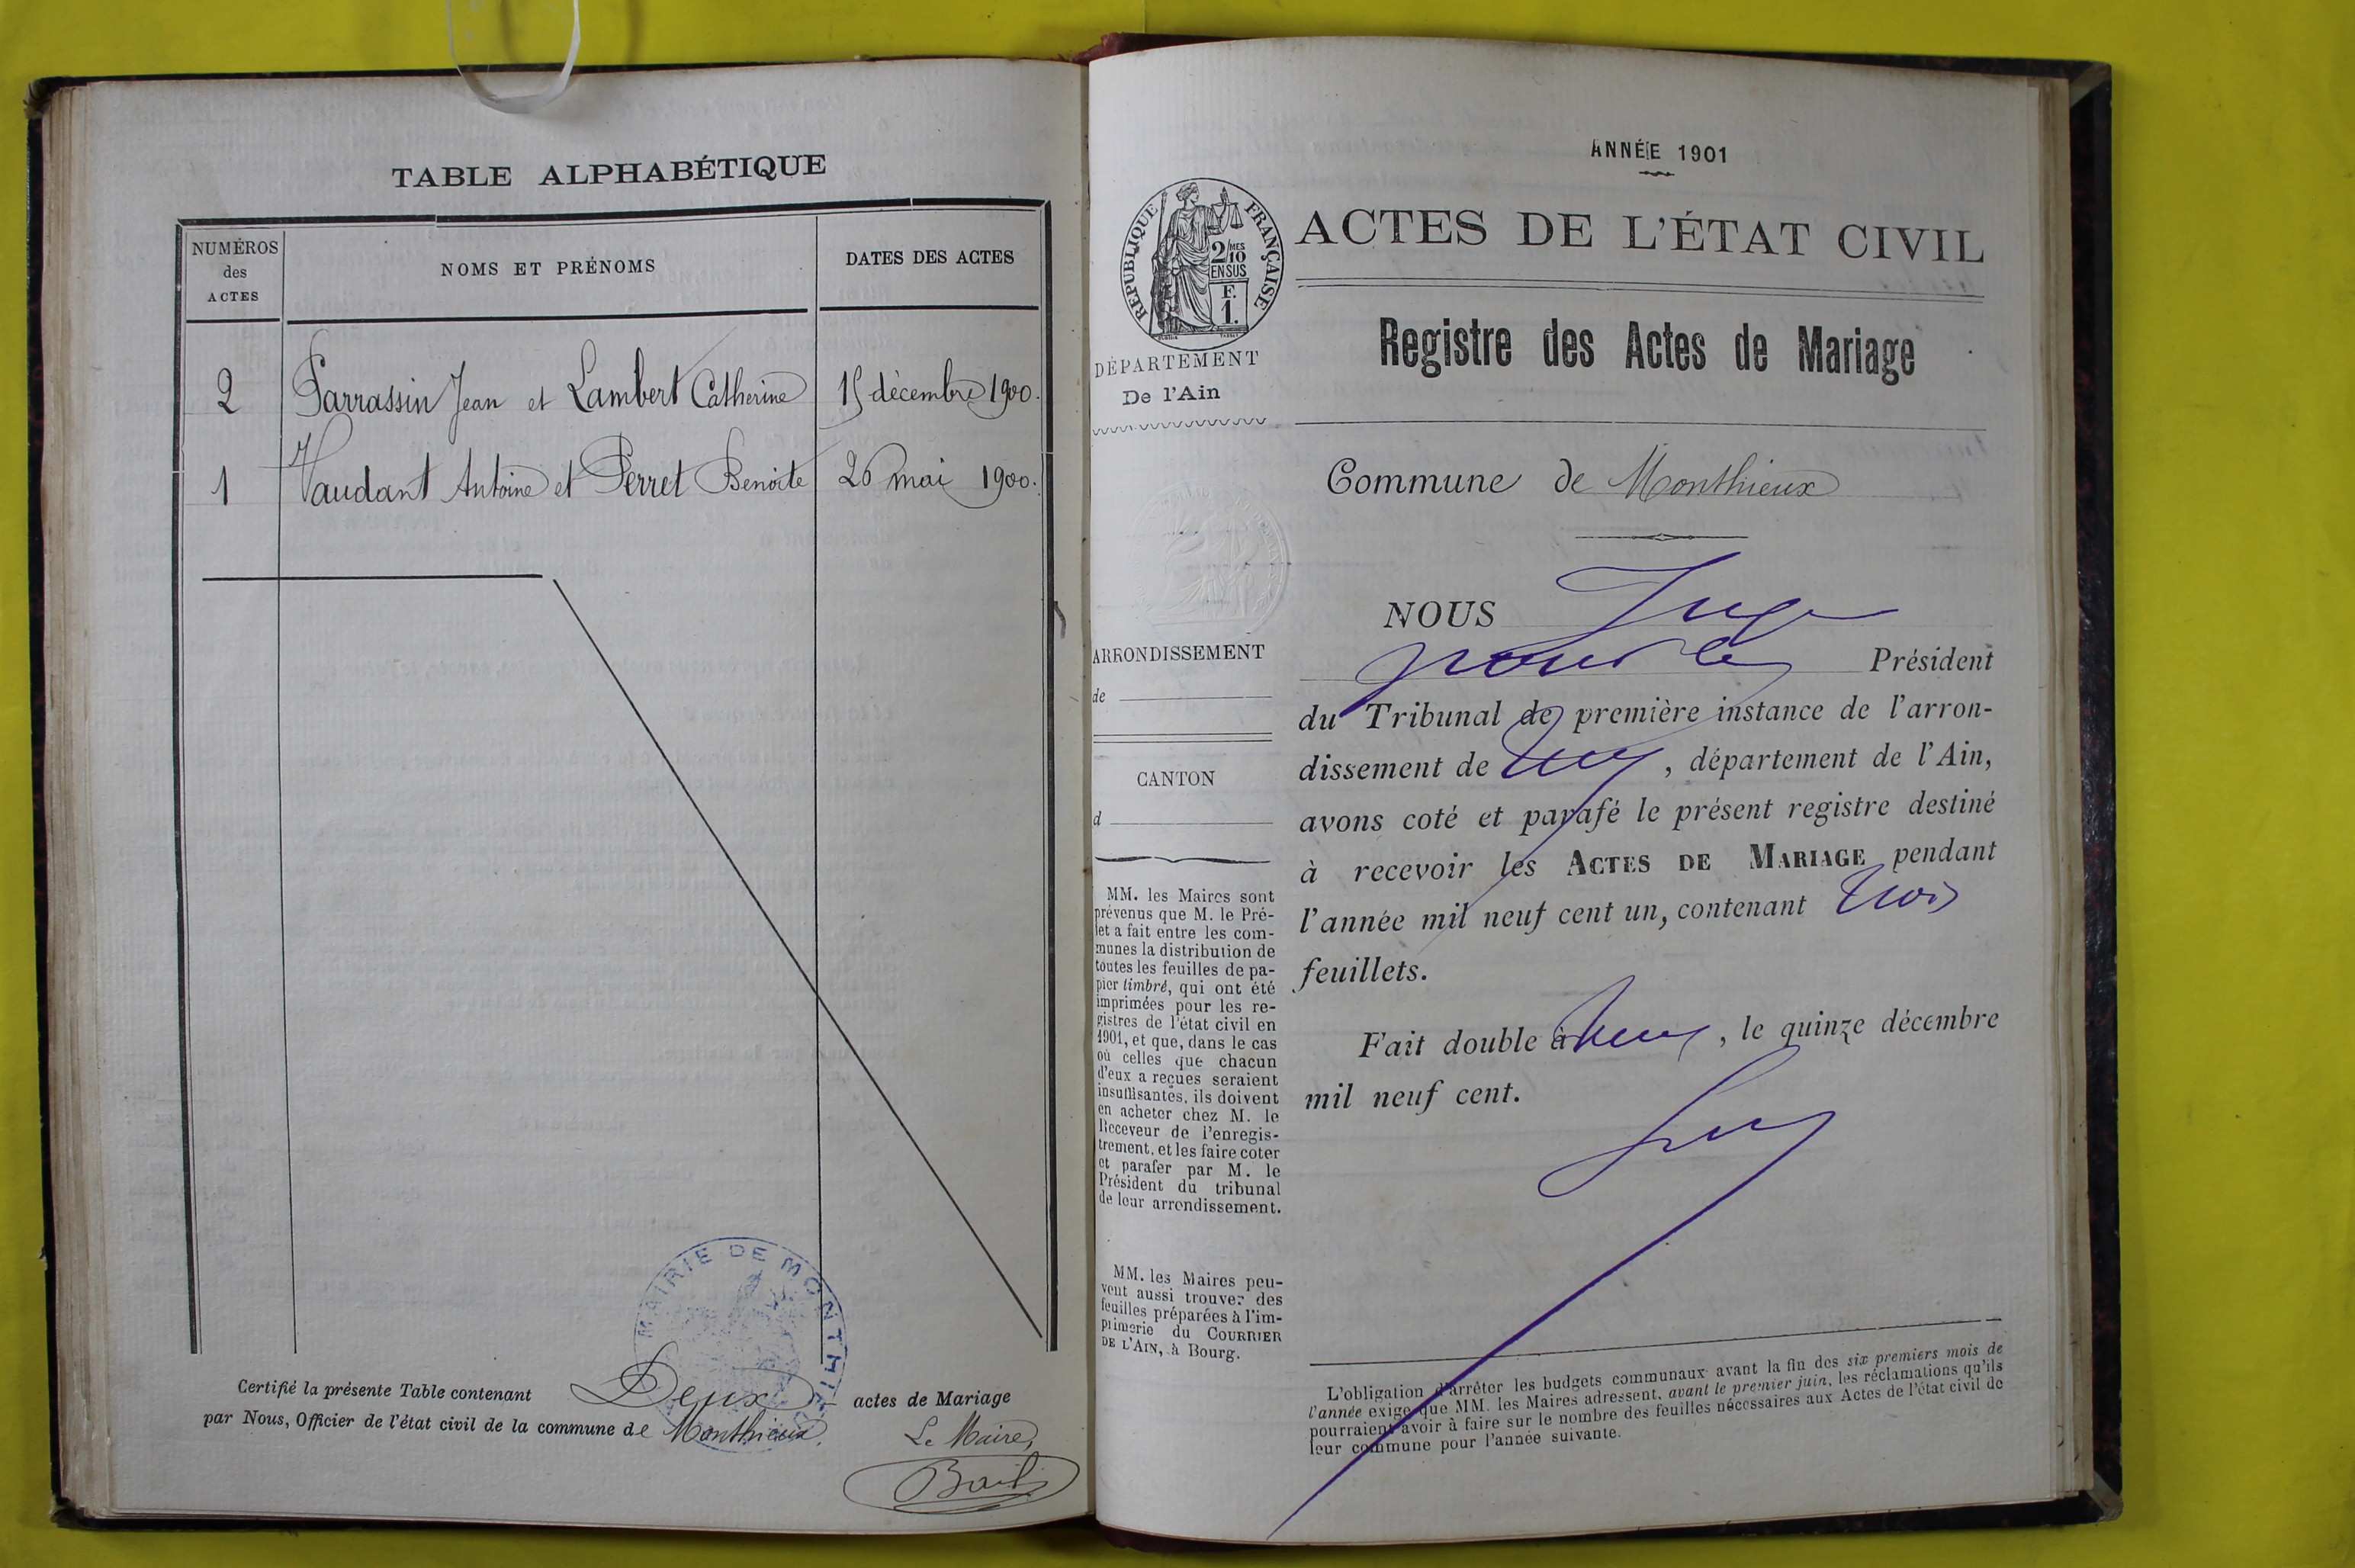 TABLE ALPHABÉTIQUE
NUMÉROS
des
ACTES
NOMS ET PRÉNOMS
DATES DES ACTES
2 Parrassin Jean et Lambert Catherine 15 décembre 1900.
1 Vaudant Antoine et Perret Benoite 26 mai 1900.
MAIRIE DE MONTHIEUX
Certifié la présente Table contenant Deux actes de Mariage
par Nous, Officier de l'état civil de la commune de Monthieux.
Le Maire,
ANNÉE 1901
RÉPUBLIQUE FRANÇAISE
2/10
MES
EN SUS
F.
1.
DÉPARTEMENT
De l'Ain
ARRONDISSEMENT
de
CANTON
d
MM. les Maires sont
prévenus que M. le Pré-
fet a fait entre les com-
munes la distribution de
toutes les feuilles de pa-
pier timbré, qui ont été
imprimées pour les re-
gistres de l'état civil en
1901, et que, dans le cas
où celles que chacun
d'eux a reçues seraient
insuffisantes, ils doivent
en acheter chez M. le
Receveur de l'enregis-
trement, et les faire coter
et parafer par M. le
Président du tribunal
de leur arrondissement.
MM. les Maires peu-
vent aussi trouver des
feuilles préparées à l'im-
primerie du COURRIER
DE L'AIN, à Bourg.
ACTES DE L'ÉTAT CIVIL
Registre des Actes de Mariage
Commune de Monthieux
NOUS Juge
pour le Président
du Tribunal de première instance de l'arron-
dissement de , département de l'Ain,
avons coté et parafé le présent registre destiné
à recevoir les ACTES DE MARIAGE pendant
l'année mil neuf cent un, contenant trois
feuillets.
Fait double à , le quinze décembre
mil neuf cent.
L'obligation d'arrêter les budgets communaux avant la fin des six premiers mois de
l'année exige que MM. les Maires adressent, avant le premier juin, les réclamations qu'ils
pourraient avoir à faire sur le nombre des feuilles nécessaires aux Actes de l'état civil de
leur commune pour l'année suivante.